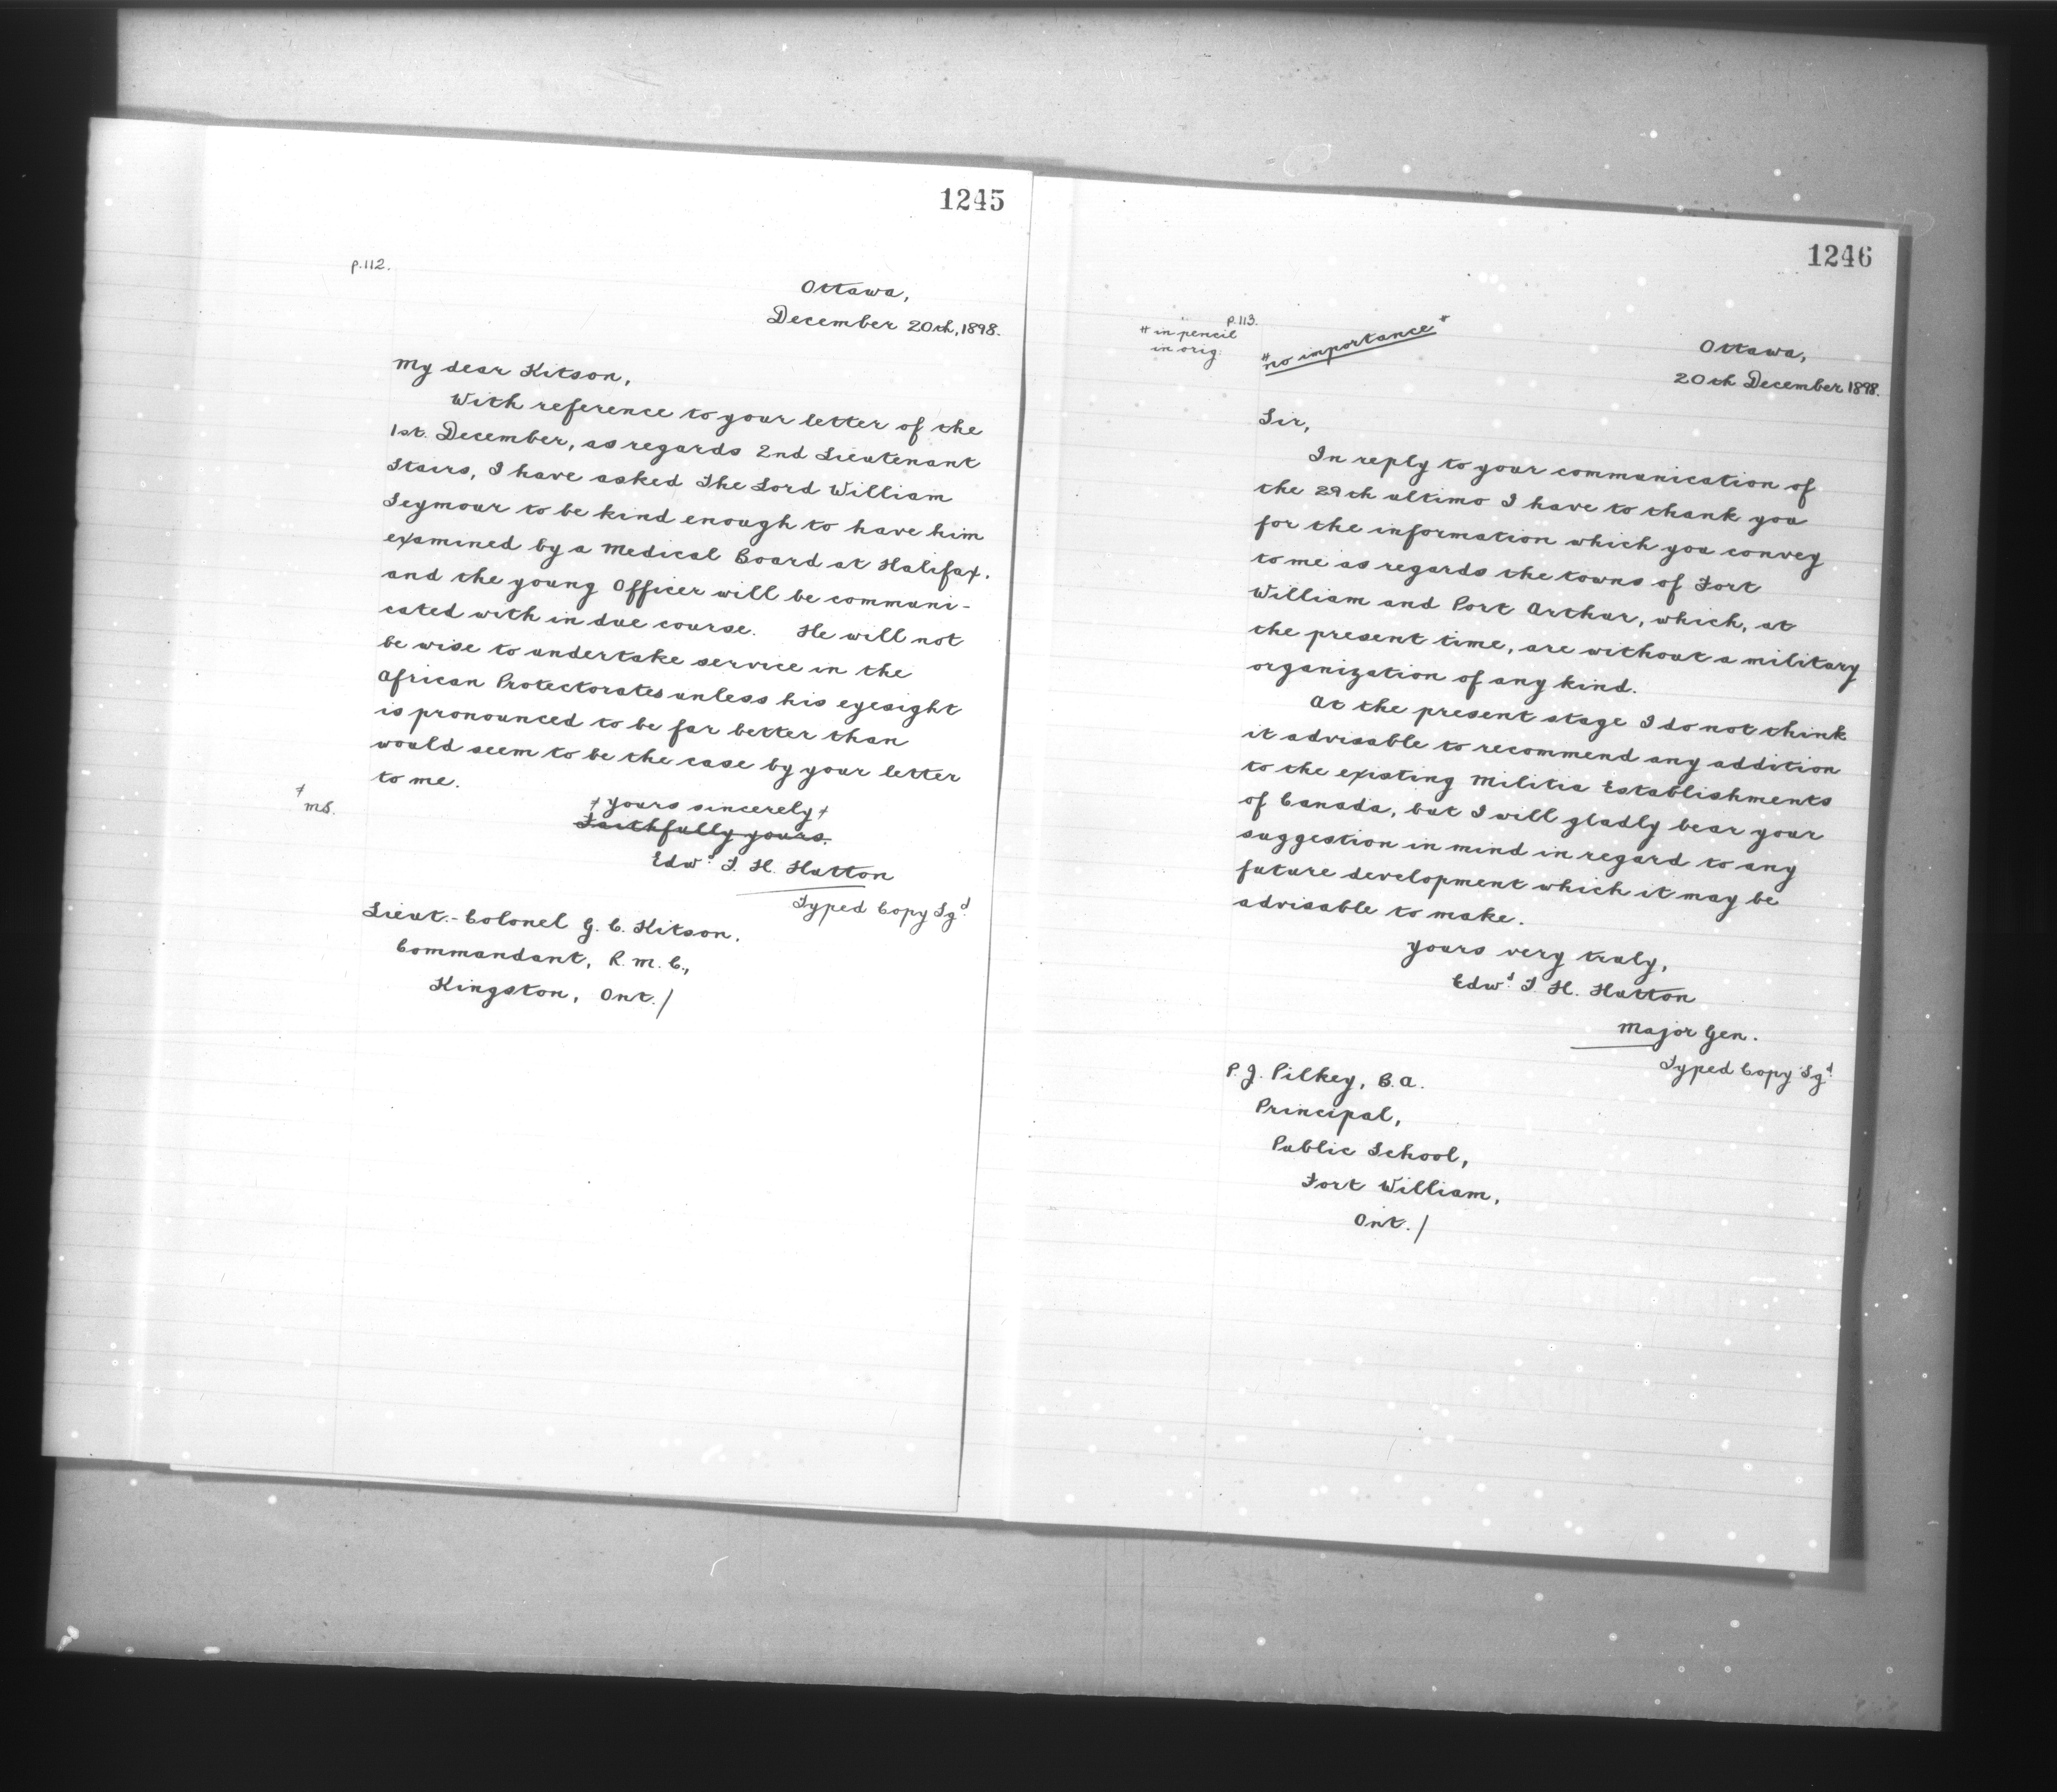 1245
p.112.
Ottawa,
December 20th, 1898.
My dear Kitson,
With reference to your letter of the
1st. December, as regards 2nd Lieutenant
Stairs, I have asked The Lord William
Seymour to be kind enough to have him
examined by a Medical Board at Halifax,
and the young Officer will be communi-
cated with in due course. He will not
be wise to undertake service in the
African Protectorates unless his eyesight
is pronounced to be far better than
would seem to be the case by your letter
to me.
≠ MS.
≠ yours sincerely ≠
Faithfully yours.
Edwd. T. H. Hutton
Typed Copy Sgd.
Lieut.-Colonel G. C. Kitson,
Commandant, R. M. C.,
Kingston, Ont./
1246
p.113.
# in pencil
in orig.
# no importance #
Ottawa,
20th December 1898.
Sir,
In reply to your communication of
the 29th ultimo I have to thank you
for the information which you convey
to me as regards the towns of Fort
William and Port Arthur, which, at
the present time, are without a military
organization of any kind.
At the present stage I do not think
it advisable to recommend any addition
to the existing Militia Establishments
of Canada, but I will gladly bear your
suggestion in mind in regard to any
future development which it may be
advisable to make.
Yours very truly,
Edwd. T. H. Hutton
Major Gen.
Typed Copy Sgd.
P. J. Pilkey, B.A.
Principal,
Public School,
Fort William,
Ont./